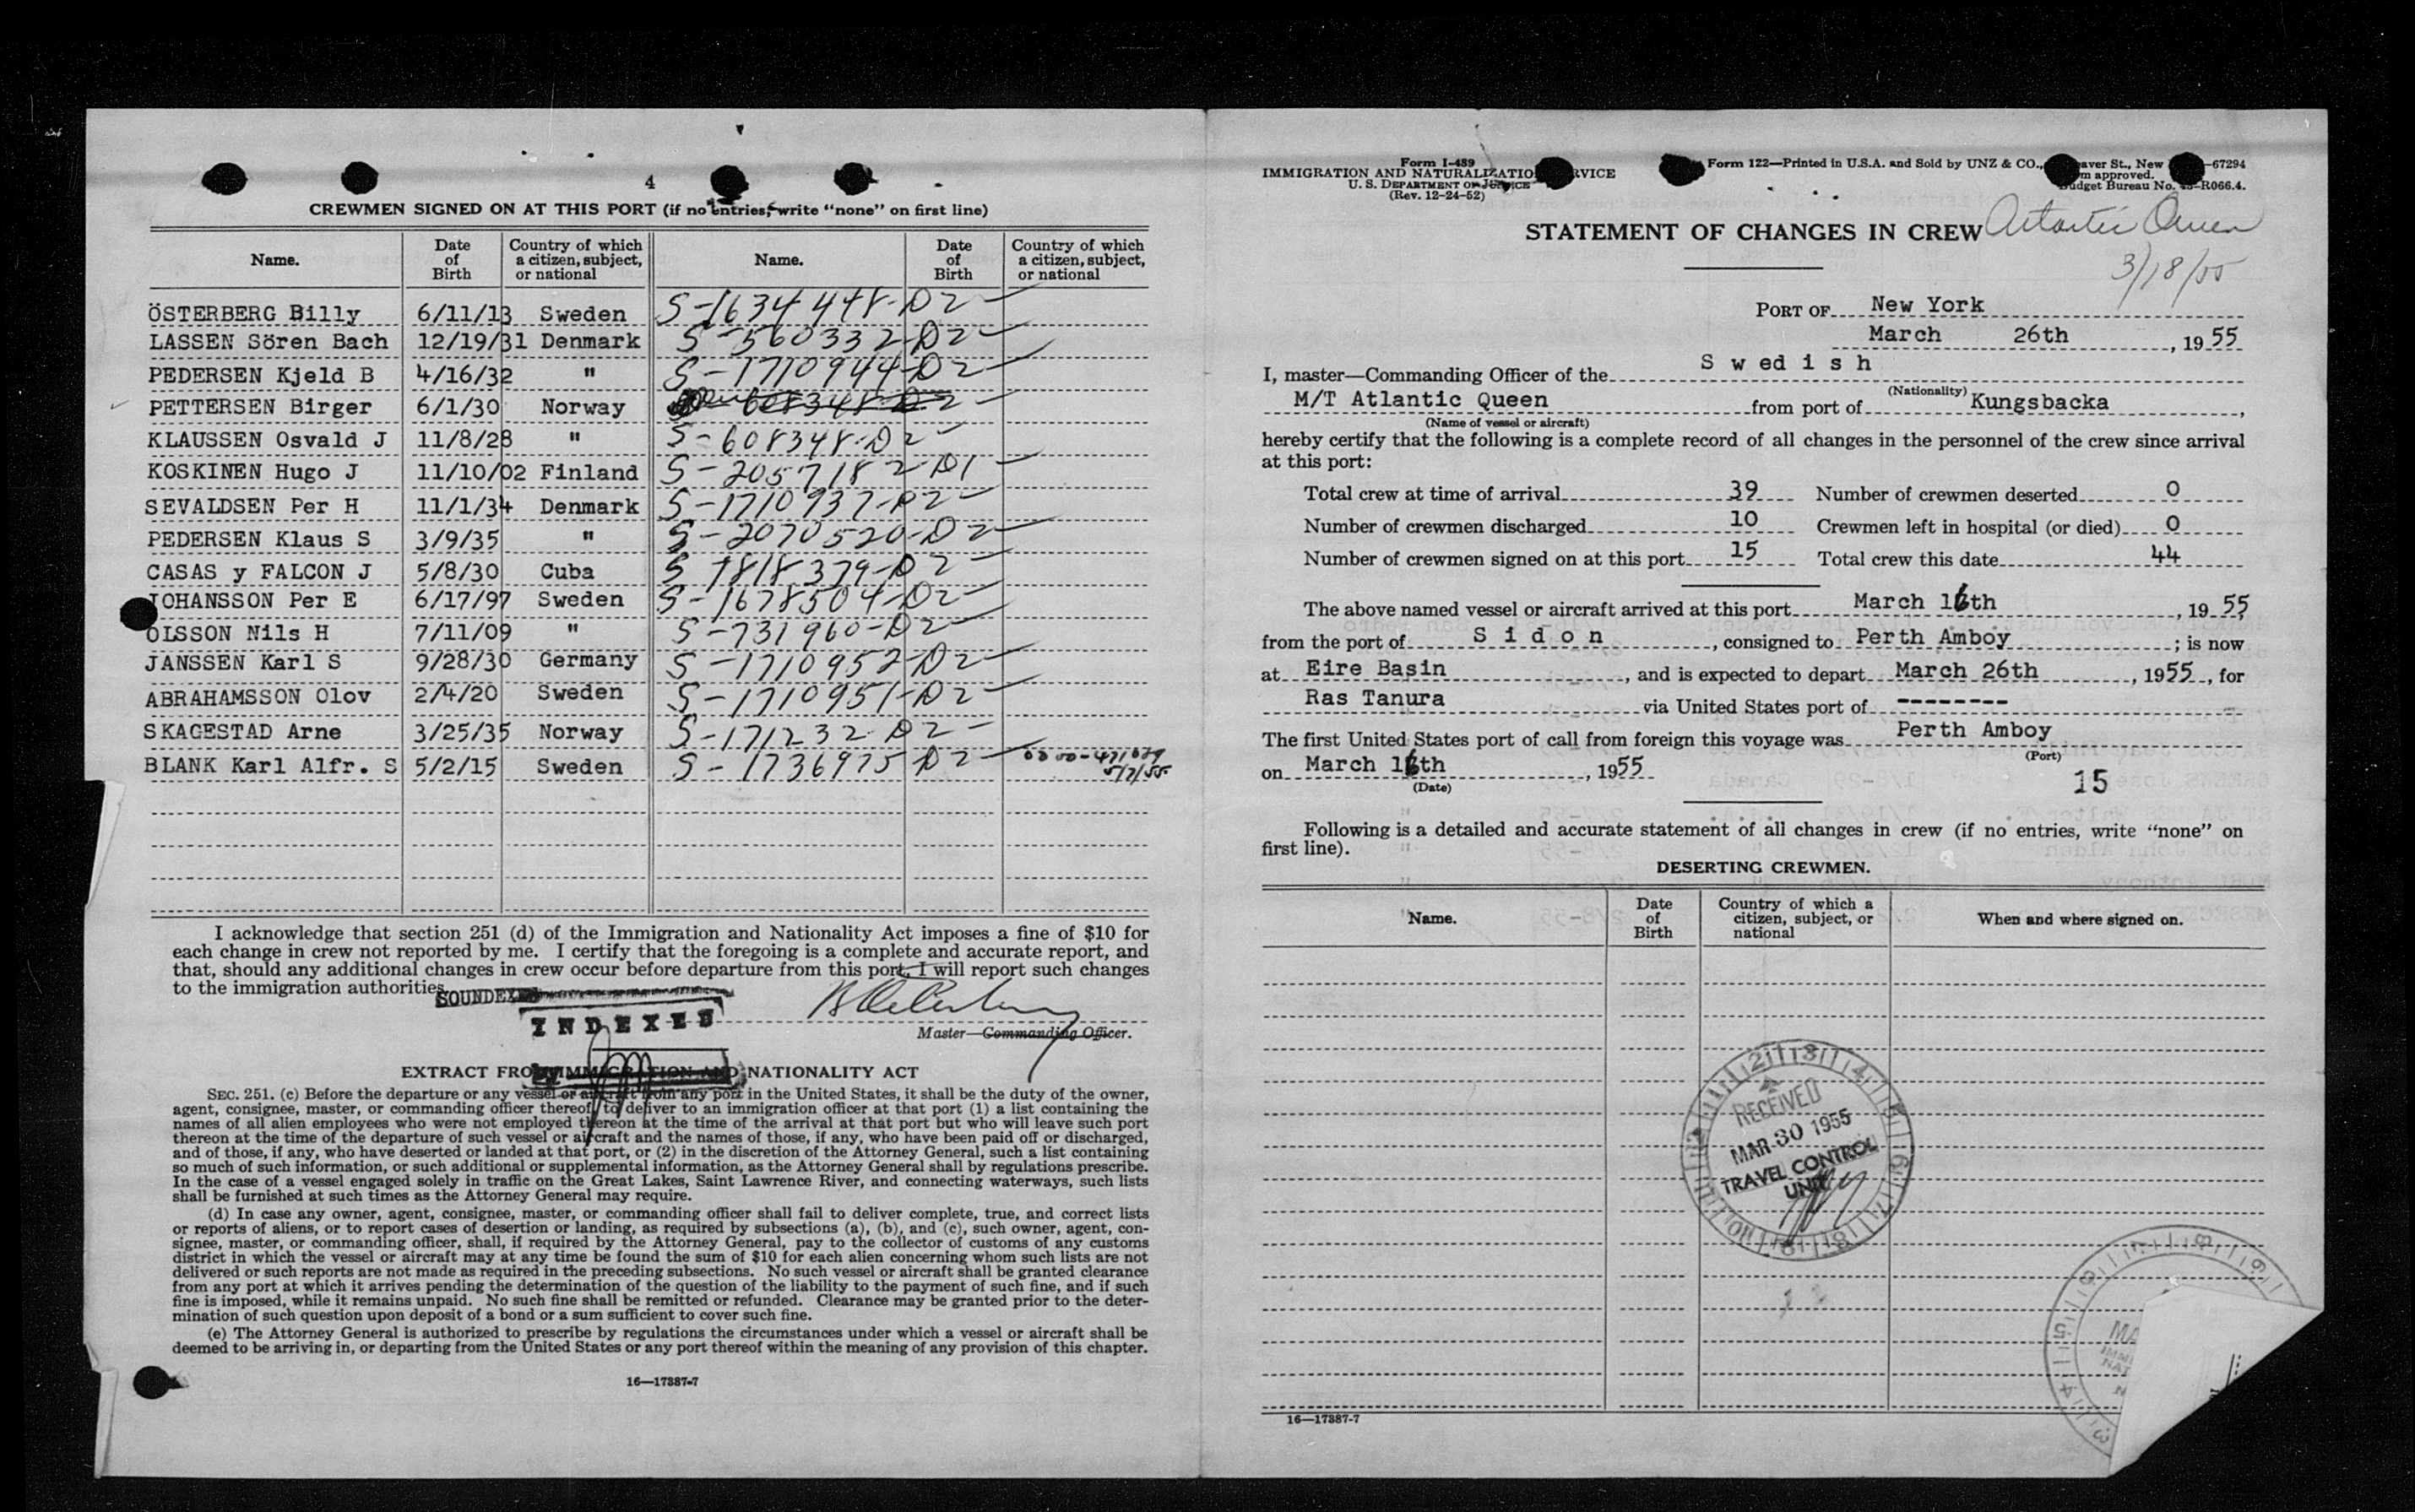 4
CREWMEN SIGNED ON AT THIS PORT (if no entries, write "none" on first line)
Name. Date of Birth Country of which a citizen, subject, or national Name. Date of Birth Country of which a citizen, subject, or national
ÖSTERBERG Billy 6/11/13 Sweden S-1634448-D2
LASSEN Sören Bach 12/19/31 Denmark S-560332-D2
PEDERSEN Kjeld B 4/16/32 " S-1710944-D2
PETTERSEN Birger 6/1/30 Norway 608348-D2
KLAUSSEN Osvald J 11/8/28 " S-608348-D2
KOSKINEN Hugo J 11/10/02 Finland S-2057182-D1
SEVALDSEN Per H 11/1/34 Denmark S-1710937-D2
PEDERSEN Klaus S 3/9/35 " S-2070520-D2
CASAS y FALCON J 5/8/30 Cuba S-1818379-D2
JOHANSSON Per E 6/17/97 Sweden S-1678504-D2
OLSSON Nils H 7/11/09 " S-731960-D2
JANSSEN Karl S 9/28/30 Germany S-1710952-D2
ABRAHAMSSON Olov 2/4/20 Sweden S-1710951-D2
SKAGESTAD Arne 3/25/35 Norway S-171232 D2
BLANK Karl Alfr. S 5/2/15 Sweden S-1736975 D2
I acknowledge that section 251 (d) of the Immigration and Nationality Act imposes a fine of $10 for
each change in crew not reported by me. I certify that the foregoing is a complete and accurate report, and
that, should any additional changes in crew occur before departure from this port, I will report such changes
to the immigration authorities.
SOUNDEXED
INDEXED
Master—Commanding Officer.
EXTRACT FROM IMMIGRATION AND NATIONALITY ACT
SEC. 251. (c) Before the departure or any vessel or aircraft from any port in the United States, it shall be the duty of the owner,
agent, consignee, master, or commanding officer thereof to deliver to an immigration officer at that port (1) a list containing the
names of all alien employees who were not employed thereon at the time of the arrival at that port but who will leave such port
thereon at the time of the departure of such vessel or aircraft and the names of those, if any, who have been paid off or discharged,
and of those, if any, who have deserted or landed at that port, or (2) in the discretion of the Attorney General, such a list containing
so much of such information, or such additional or supplemental information, as the Attorney General shall by regulations prescribe.
In the case of a vessel engaged solely in traffic on the Great Lakes, Saint Lawrence River, and connecting waterways, such lists
shall be furnished at such times as the Attorney General may require.
(d) In case any owner, agent, consignee, master, or commanding officer shall fail to deliver complete, true, and correct lists
or reports of aliens, or to report cases of desertion or landing, as required by subsections (a), (b), and (c), such owner, agent, con-
signee, master, or commanding officer, shall, if required by the Attorney General, pay to the collector of customs of any customs
district in which the vessel or aircraft may at any time be found the sum of $10 for each alien concerning whom such lists are not
delivered or such reports are not made as required in the preceding subsections. No such vessel or aircraft shall be granted clearance
from any port at which it arrives pending the determination of the question of the liability to the payment of such fine, and if such
fine is imposed, while it remains unpaid. No such fine shall be remitted or refunded. Clearance may be granted prior to the deter-
mination of such question upon deposit of a bond or a sum sufficient to cover such fine.
(e) The Attorney General is authorized to prescribe by regulations the circumstances under which a vessel or aircraft shall be
deemed to be arriving in, or departing from the United States or any port thereof within the meaning of any provision of this chapter.
16—17387-7
Form I-489
IMMIGRATION AND NATURALIZATION SERVICE
U. S. DEPARTMENT OF JUSTICE
(Rev. 12-24-52)
Form 122—Printed in U.S.A. and Sold by UNZ & CO., Beaver St., New 67294
Form approved.
Budget Bureau No. 43-R066.4.
STATEMENT OF CHANGES IN CREW Atlantic Queen
3/18/55
PORT OF New York
March 26th, 1955
I, master—Commanding Officer of the Swedish
(Nationality)
M/T Atlantic Queen from port of Kungsbacka,
(Name of vessel or aircraft)
hereby certify that the following is a complete record of all changes in the personnel of the crew since arrival
at this port:
Total crew at time of arrival 39 Number of crewmen deserted 0
Number of crewmen discharged 10 Crewmen left in hospital (or died) 0
Number of crewmen signed on at this port 15 Total crew this date 44
The above named vessel or aircraft arrived at this port March 16th, 1955
from the port of Sidon, consigned to Perth Amboy; is now
at Eire Basin, and is expected to depart March 26th, 1955, for
Ras Tanura via United States port of --------
The first United States port of call from foreign this voyage was Perth Amboy
(Port)
on March 16th, 1955
(Date)
15
Following is a detailed and accurate statement of all changes in crew (if no entries, write "none" on
first line).
DESERTING CREWMEN.
Name. Date of Birth Country of which a citizen, subject, or national When and where signed on.
RECEIVED
MAR 30 1955
TRAVEL CONTROL
UNIT
16—17387-7